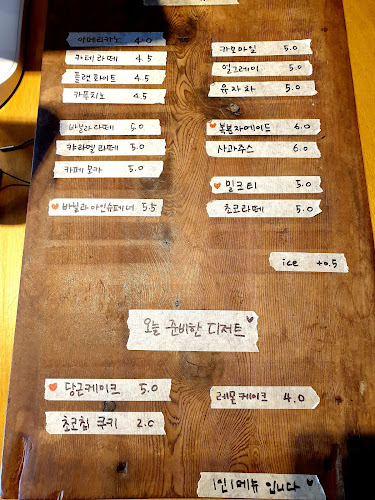 아메리카노 4.0
카페라떼 4.5
플랫화이트 4.5
카푸치노 4.5
바닐라라떼 5.0
카라멜라떼 5.0
카페모카 5.0
바닐라아인슈페너 5.5
카모마일 5.0
얼그레이 5.0
유자차 5.0
복분자에이드 6.0
사과주스 6.0
밀크티 5.0
초코라떼 5.0
ice +0.5
오늘 준비한 디저트
당근케이크 5.0
초코칩 쿠키 2.0
레몬케이크 4.0
1인 1메뉴 입니다